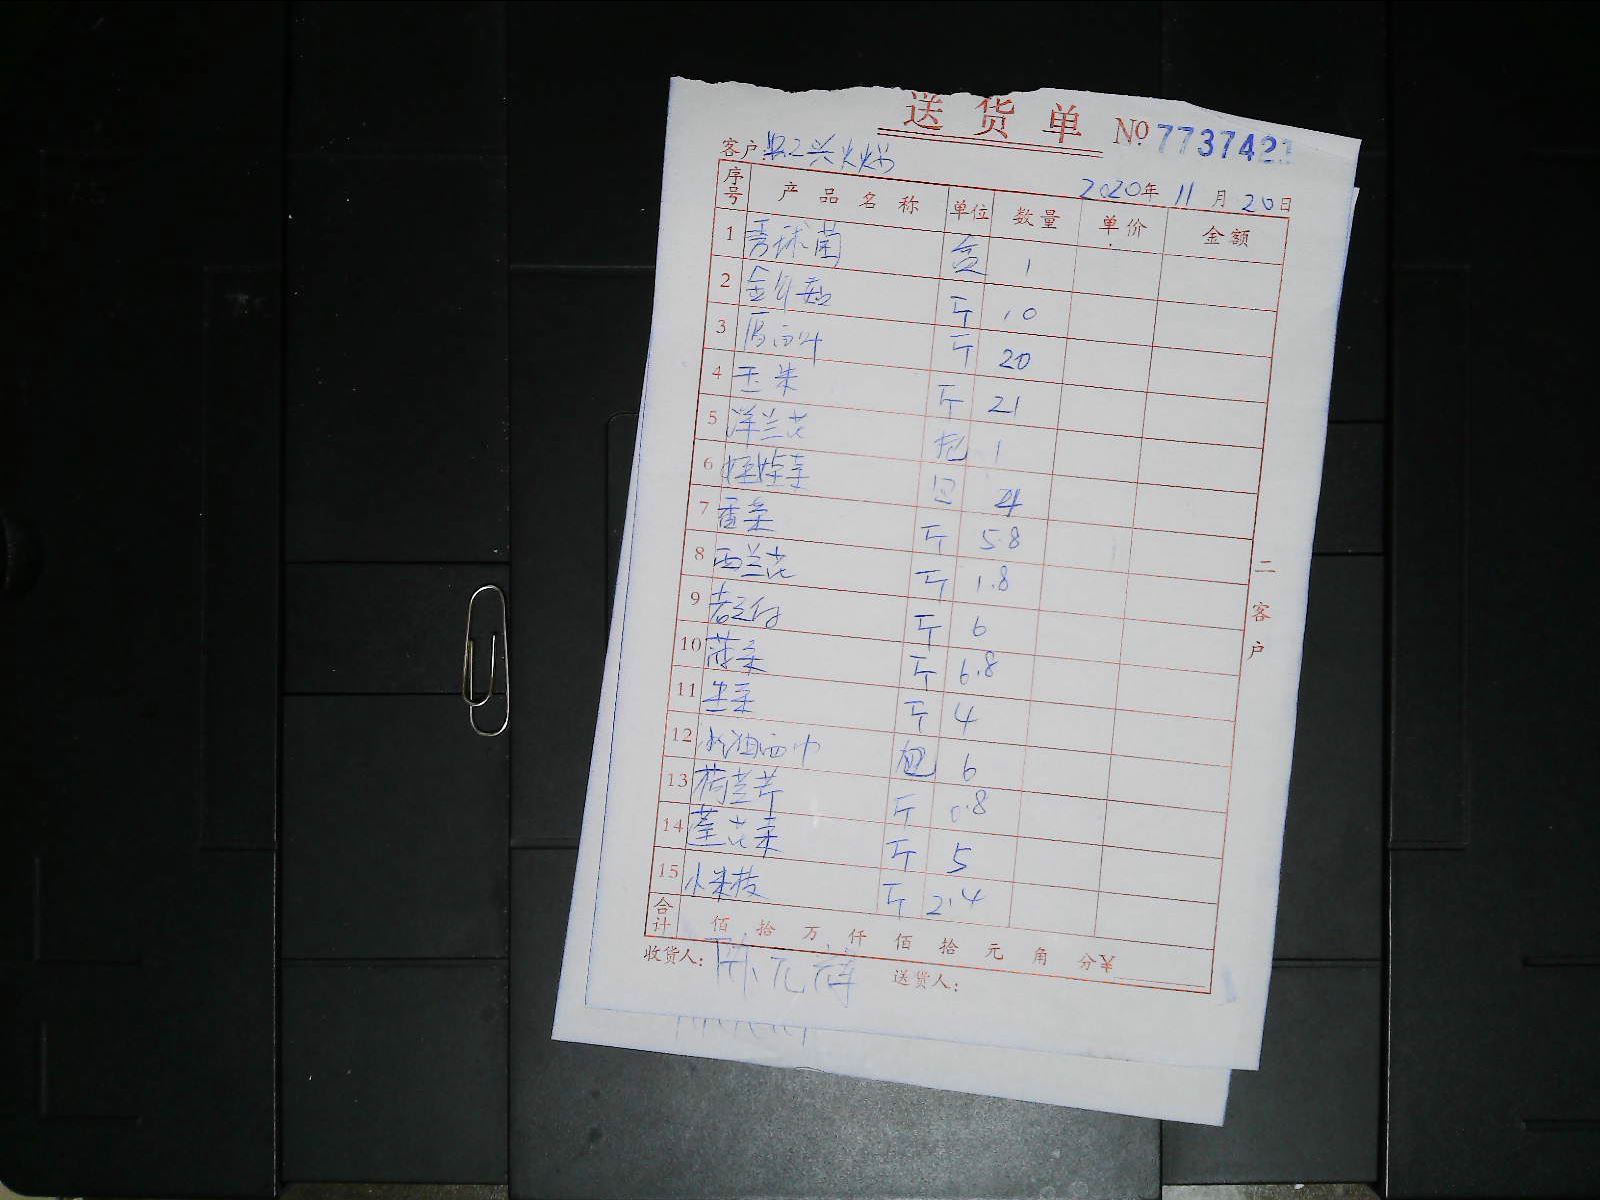 送货单 №7737421
客户
2020年 11月 20日
序号 产品名称 单位 数量 单价 金额
1 秀球菌 盒 1
2 金针菇 斤 10
3 斤 20
4 玉米 斤 21
5 洋兰花 包 1
6 娃娃菜 包 4
7 香菜 斤 5.8
8 西兰花 斤 1.8
9 斤 6
10 菠菜 斤 6.8
11 生菜 斤 4
12 包 6
13 荷兰芹 斤 0.8
14 斤 5
15 小米椒 斤 2.4
合计 佰 拾 万 仟 佰 拾 元 角 分¥
收货人: 送货人:
二客户